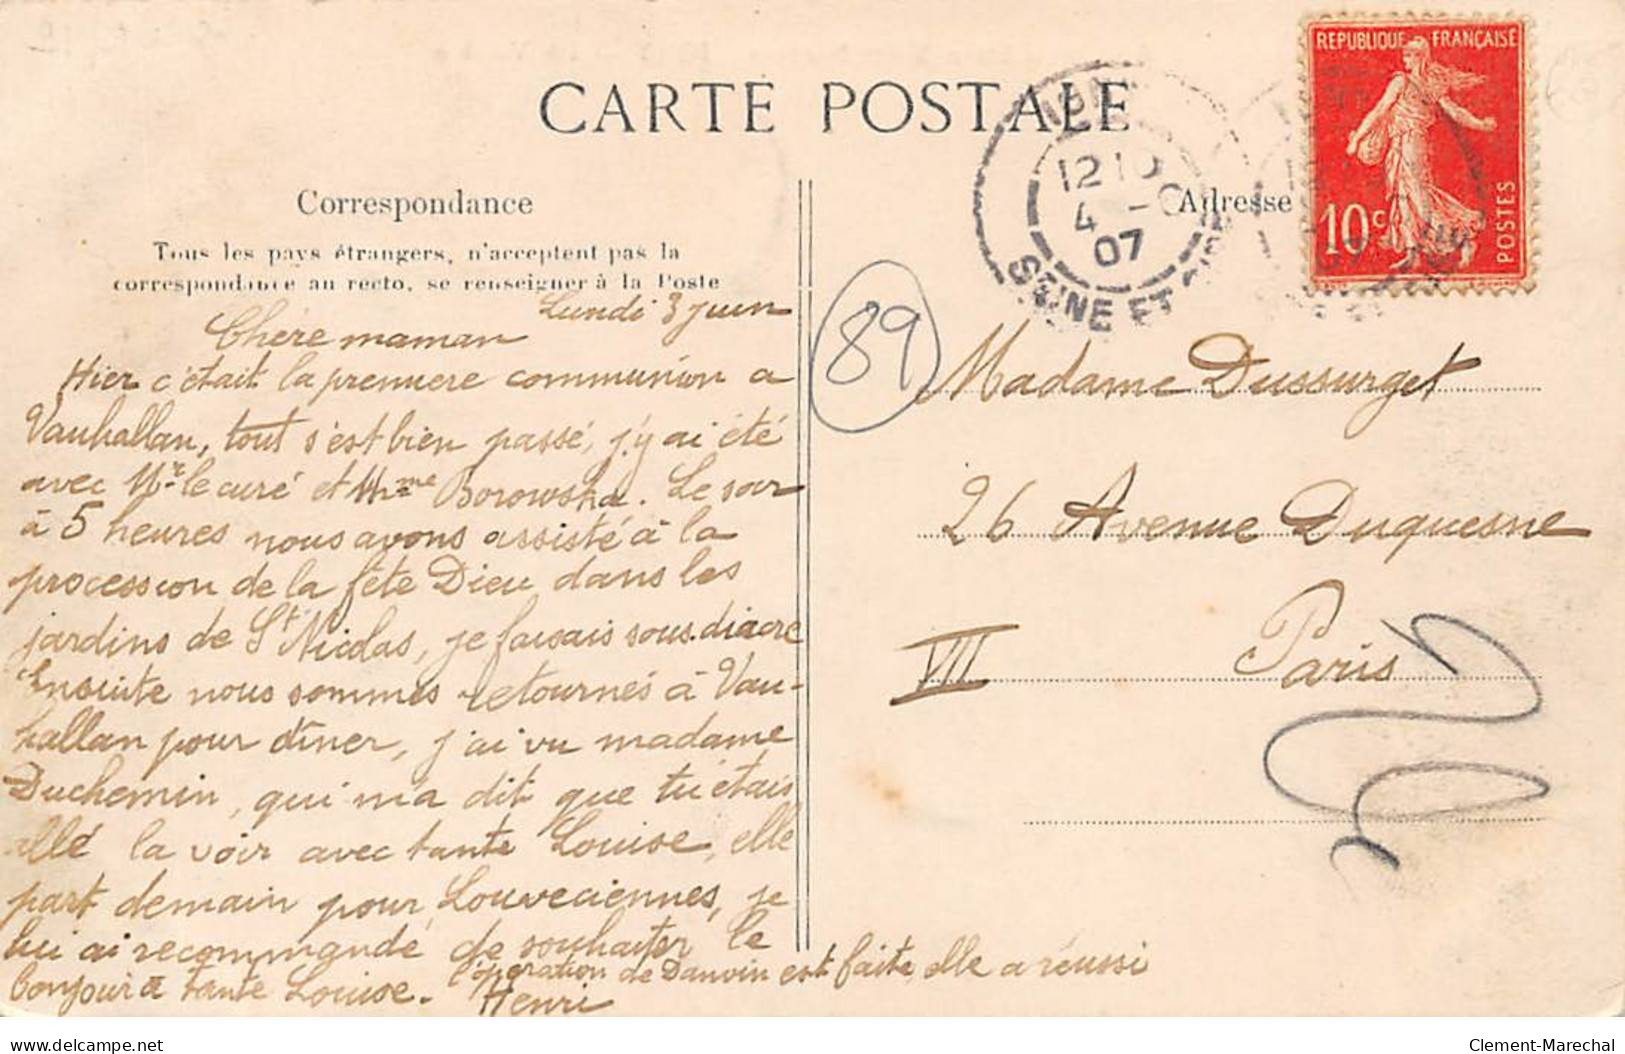 CARTE POSTALE
REPUBLIQUE FRANÇAISE
10c POSTES
12 1
4 -
07
SEINE ET
Correspondance
Adresse
Tous les pays étrangers, n'acceptent pas la
correspondance au recto, se renseigner à la Poste
Lundi 3 juin
Chère maman
Hier c'était la premiere communion a
Vauhallan, tout s'est bien passé, j'y ai été
avec Mr le curé et Mme Borowska. Le soir
à 5 heures nous avons assisté à la
procession de la fête Dieu dans les
jardins de St Nicolas, je faisais sous-diacre
Ensuite nous sommes retournés à Vau-
hallan pour dîner, j'ai vu madame
Duchemin, qui m'a dit que tu étais
allé la voir avec tante Louise, elle
part demain pour Louveciennes, je
lui ai recommandé de souhaiter le
bonjour à tante Louise. l'opération de Danvin est faite, elle a réussi
Henri
89
Madame Dussurget
26 Avenue Duquesne
Paris
VII
Clement-Marechal
delcampe.net